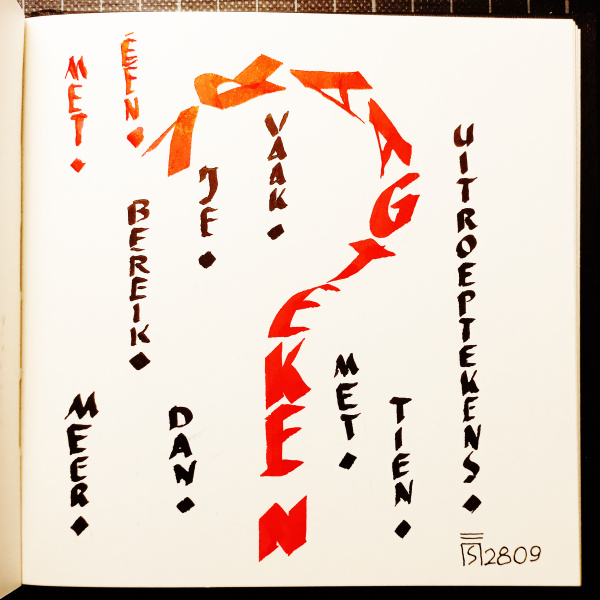 MET
ÉÉN
VRAAGTEKEN
BEREIK
JE
VAAK
MEER
DAN
MET
TIEN
UITROEPTEKENS
2809